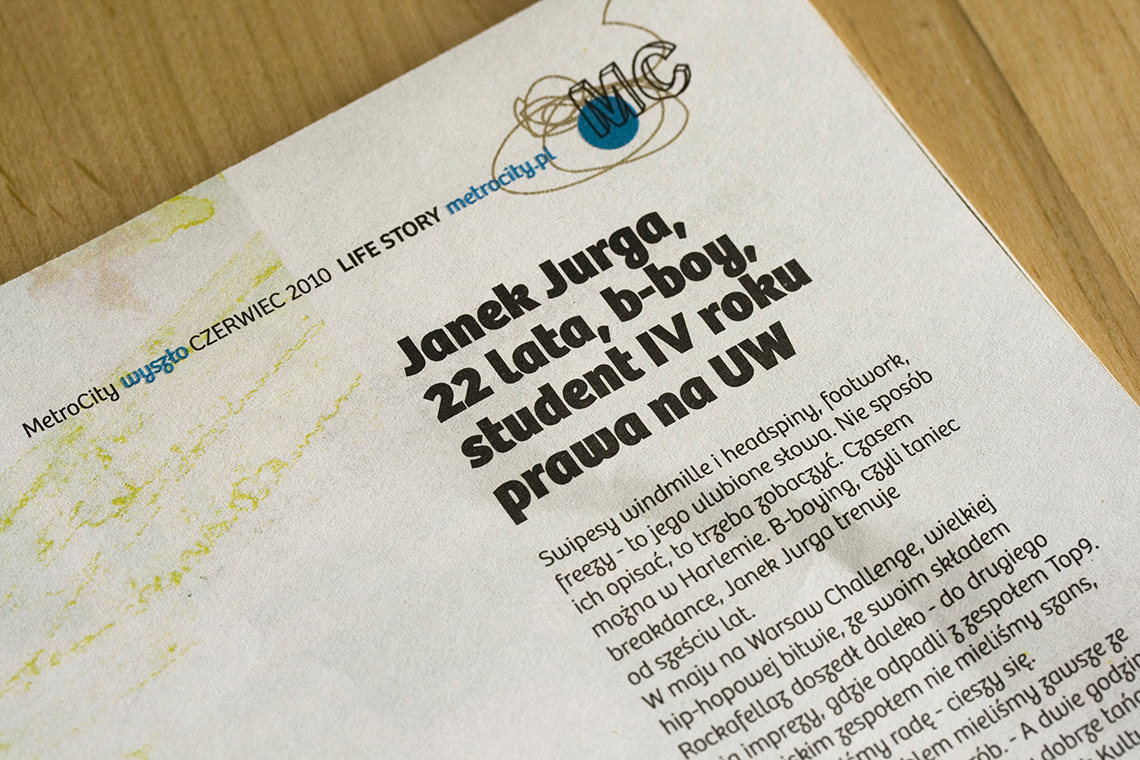 MC
MetroCity wyszło CZERWIEC 2010 LIFE STORY metrocity.pl
Janek Jurga,
22 lata, b-boy,
student IV roku
prawa na UW
Swipesy windmille i headspiny, footwork,
freezy - to jego ulubione słowa. Nie sposób
ich opisać, to trzeba zobaczyć. Czasem
można w Harlemie. B-boying, czyli taniec
breakdance, Janek Jurga trenuje
od sześciu lat.
W maju na Warsaw Challenge, wielkiej
hip-hopowej bitwie, ze swoim składem
Rockafellaz doszedł daleko - do drugiego
imprezy, gdzie odpadli z zespołem Top9.
zespołem nie mieliśmy szans,
radę - cieszy się.
mieliśmy zawsze ze
- A dwie
dobrze